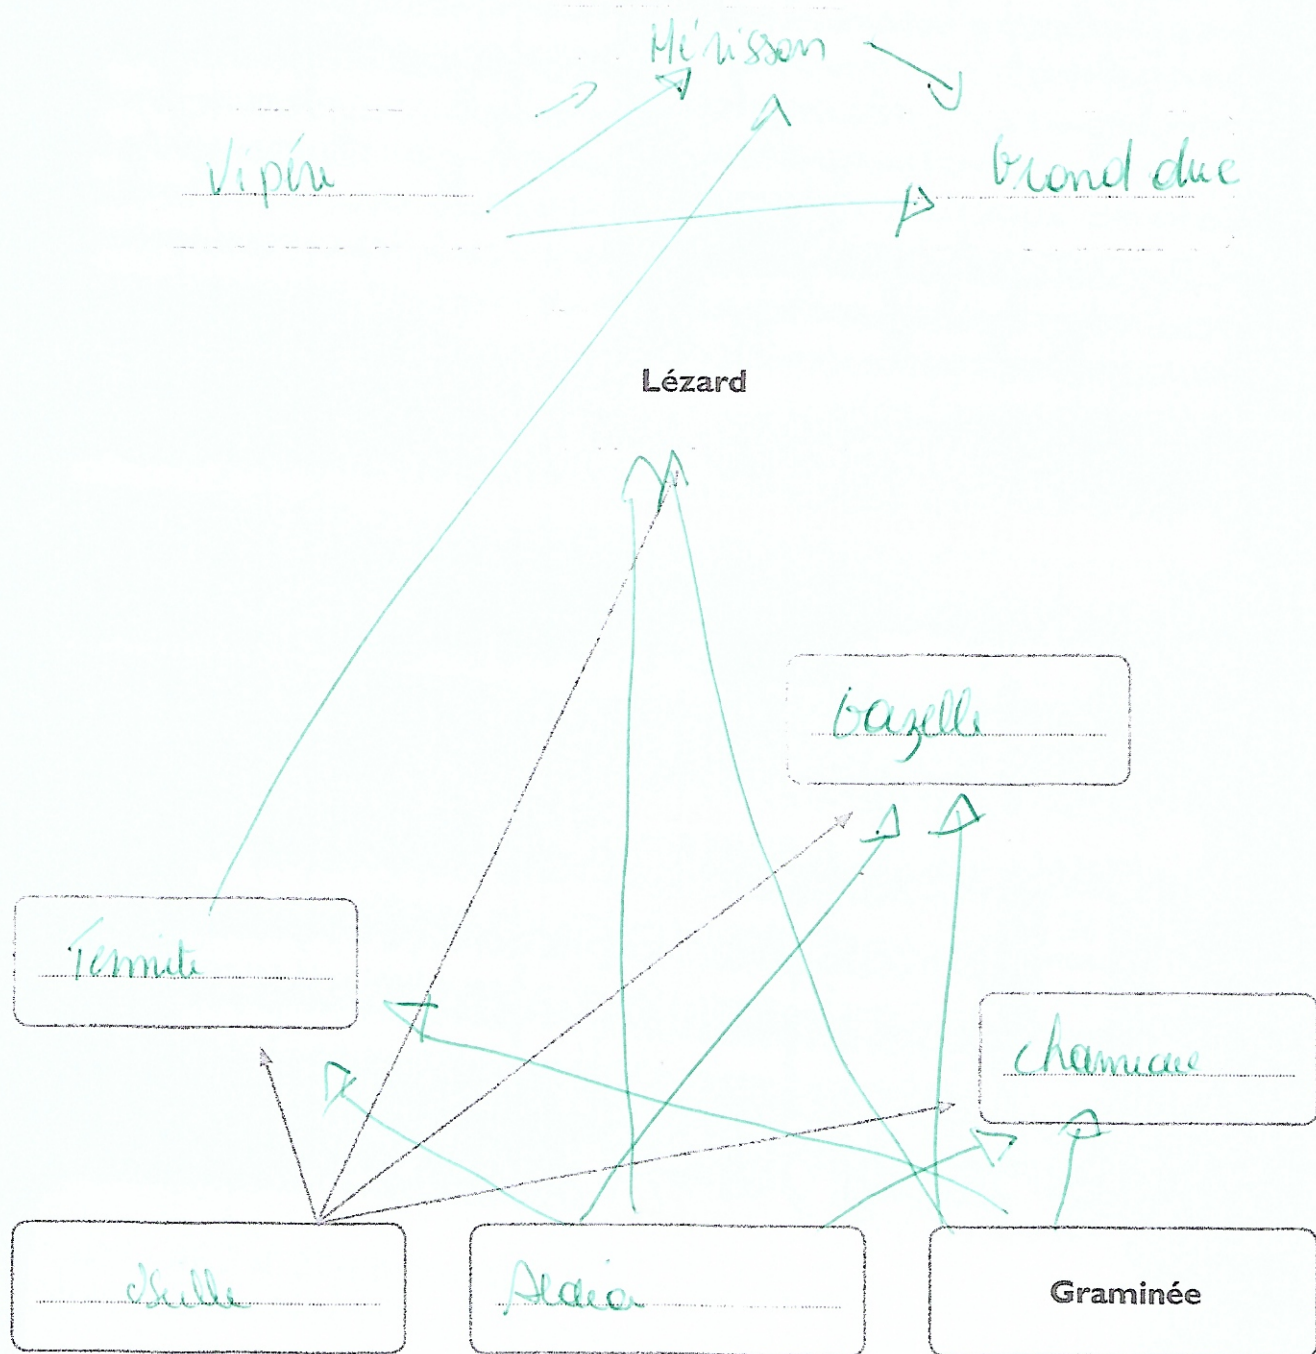 Hérisson
Vipère
Grand duc
Lézard
Gazelle
Termite
chameau
Oseille
Acacia
Graminée